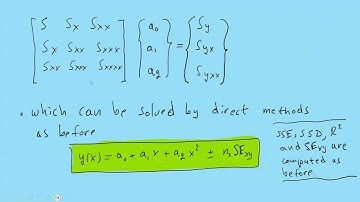 S Sx Sxx a0 Sy
Sx Sxx Sxxx a1 = Syx
Sxx Sxxx Sxxxx a2 Syxx
• which can be solved by direct methods
as before
y(x) = a0 + a1 x + a2 x² ± n0 SExy
SSE, SSD, R²
and SExy are
computed as
before.